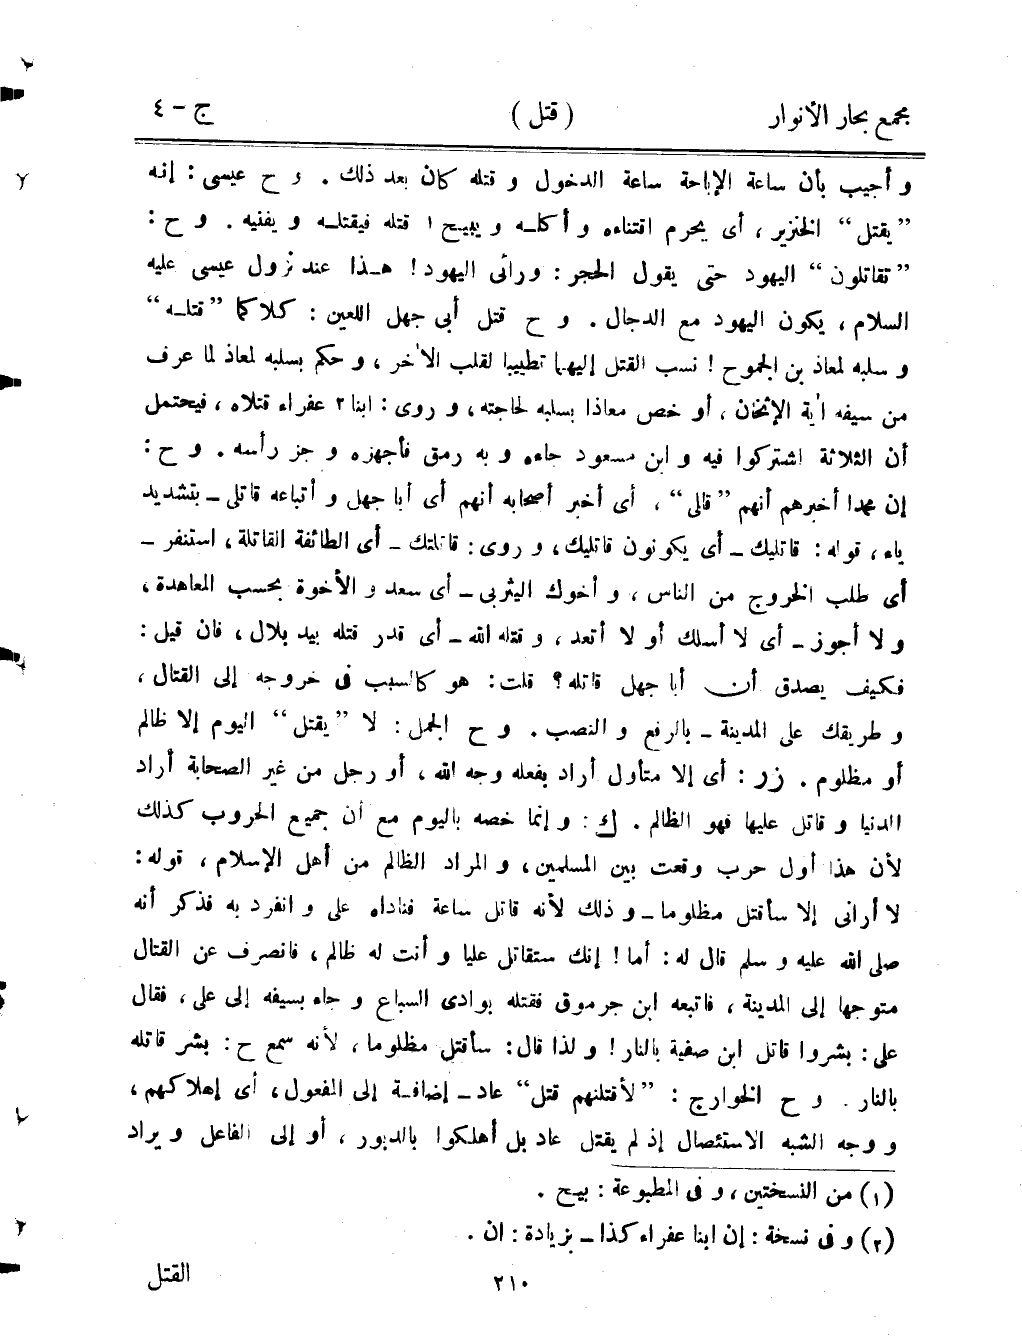 مجمع بحار الأنوار (قتل) ج - ٤
و أجيب بأن ساعة الإباحة ساعة الدخول و قتله كان بعد ذلك . و ح عيسى : إنه
”يقتل“ الخنزير ، أى يحرم اقتناءه و أكلـه و يبيح ١ قتله فيقتلـه و يفنيه . و ح :
”تقاتلون“ اليهود حتى يقول الحجر : ورائى اليهود ! هـذا عند نزول عيسى عليه
السلام ، يكون اليهود مع الدجال . و ح قتل أبى جهل اللعين : كلاكما ”قتلـه“
و سلبه لمعاذ بن الجموح ! نسب القتل إليهما تطييبا لقلب الآخر ، و حكم بسلبه لمعاذ لما عرف
من سيفه أية الإثخان ، أو خص معاذا بسلبه لحاجته ، و روى : ابنا ٢ عفراء قتلاه ، فيحتمل
أن الثلاثة اشتركوا فيه و ابن مسعود جاءه و به رمق فأجهزه و جز رأسه . و ح :
إن محمدا أخبرهم أنهم ”قاتلى“ ، أى أخبر أصحابه أنهم أى أبا جهل و أتباعه قاتلى ــ بتشديد
ياء ، قوله : قاتليك ــ أى يكونون قاتليك ، و روى : قاتلتك ــ أى الطائفة القاتلة ، استنفر ــ
أى طلب الخروج من الناس ، و أخوك اليثربى ــ أى سعد و الأخوة بحسب المعاهدة ،
و لا أجوز ــ أى لا أسلك أو لا أتعد ، و قتله الله ــ أى قدر قتله بيد بلال ، فان قيل :
فكيف يصدق أن أبا جهل قاتله ؟ قلت : هو كالسبب فى خروجه إلى القتال ،
و طريقك على المدينة ــ بالرفع و النصب . و ح الجمل : لا ”يقتل“ اليوم إلا ظالم
أو مظلوم . زر : أى إلا متأول أراد بفعله وجه الله ، أو رجل من غير الصحابة أراد
الدنيا و قاتل عليها فهو الظالم . ك : و إنما خصه باليوم مع أن جميع الحروب كذلك
لأن هذا أول حرب وقعت بين المسلمين ، و المراد الظالم من أهل الإسلام ، قوله :
لا أرانى إلا سأقتل مظلوما ــ و ذلك لأنه قاتل ساعة فناداه على و انفرد به فذكر أنه
صلى الله عليه و سلم قال له : أما ! إنك ستقاتل عليا و أنت له ظالم ، فانصرف عن القتال
متوجها إلى المدينة ، فاتبعه ابن جرموق فقتله بوادى السباع و جاء بسيفه إلى على ، فقال
على : بشروا قاتل ابن صفية بالنار ! و لذا قال : سأقتل مظلوما ، لأنه سمع ح : بشر قاتله
بالنار . و ح الخوارج : ”لأقتلنهم قتل“ عاد ــ إضافـة إلى المفعول ، أى إهلاكهم ،
و وجه الشبه الاستئصال إذ لم يقتل عاد بل أهلكوا بالدبور ، أو إلى الفاعل و يراد
(١) من النسختين ، و فى المطبوعة : بيح .
(٢) و فى نسخة : إن ابنا عفراء كذا ــ بزيادة : ان .
٢١٠ القتل